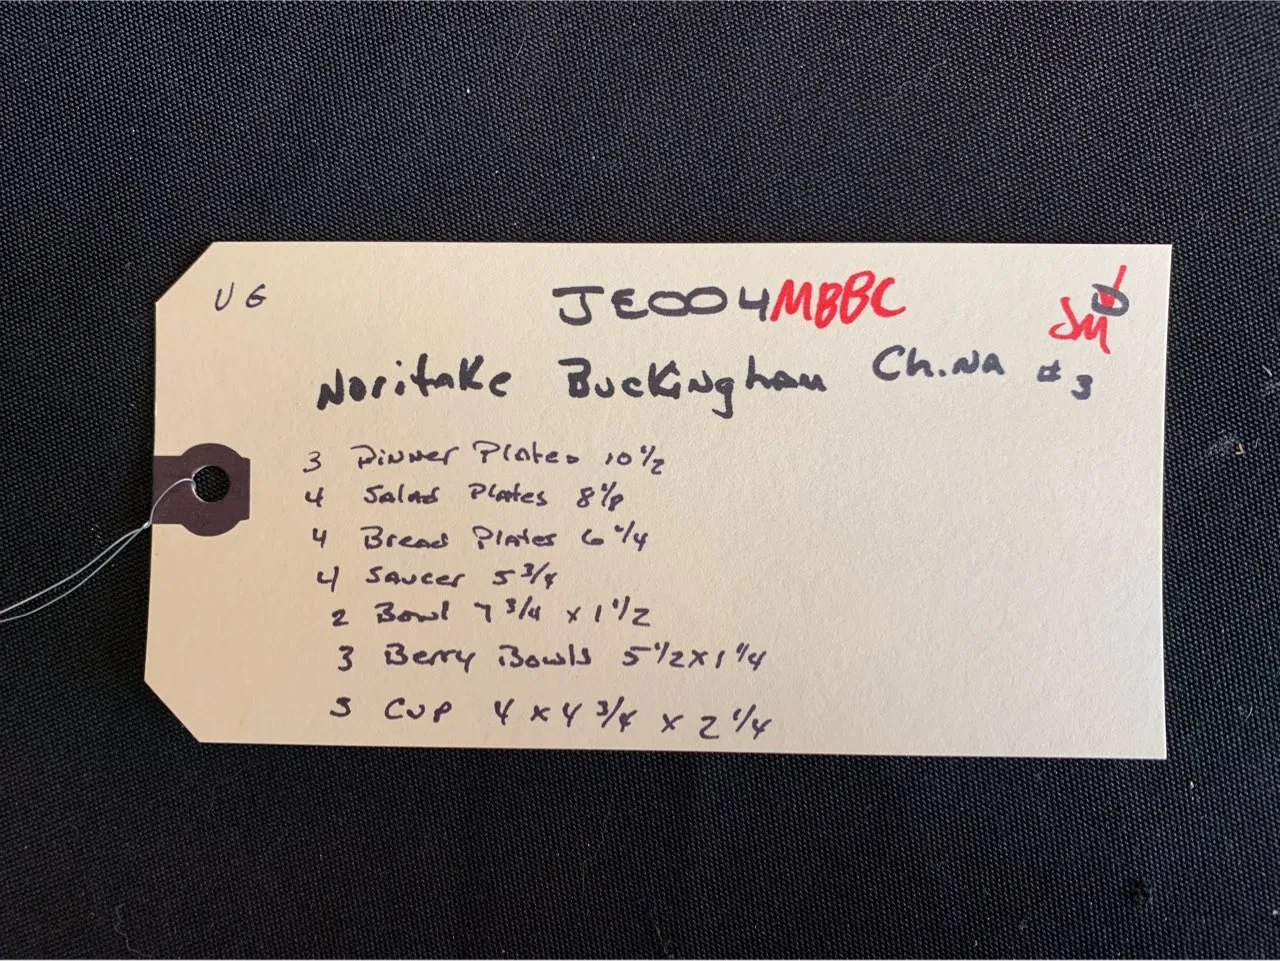 UG JE004MBBC JM
Noritake Buckingham China #3
3 Dinner Plates 10 1/2
4 Salad Plates 8 1/8
4 Bread Plates 6 1/4
4 Saucer 5 3/4
2 Bowl 7 3/4 x 1 1/2
3 Berry Bowls 5 1/2 x 1 1/4
Cup 4 x 4 3/4 x 2 1/4